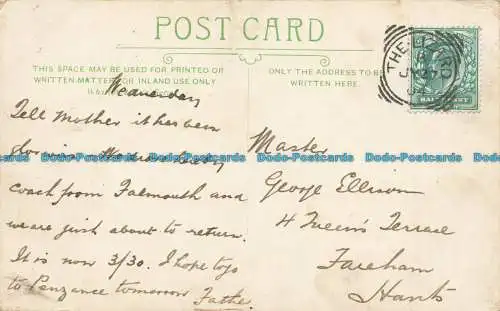 POST CARD
THIS SPACE MAY BE USED FOR PRINTED OR
WRITTEN MATTER FOR INLAND USE ONLY
Wednesday
Tell Mother it has been
glorious
coach from Falmouth and
we are just about to return.
It is now 3/30. I hope to go
to Penzance tomorrow Father
ONLY THE ADDRESS TO BE
WRITTEN HERE.
Master
George Ellison
4 Queen's Terrace
Fareham
Hants
THE
HALFPENNY
Dodo-Postcards Dodo-Postcards Dodo-Postcards Dodo-Postcards